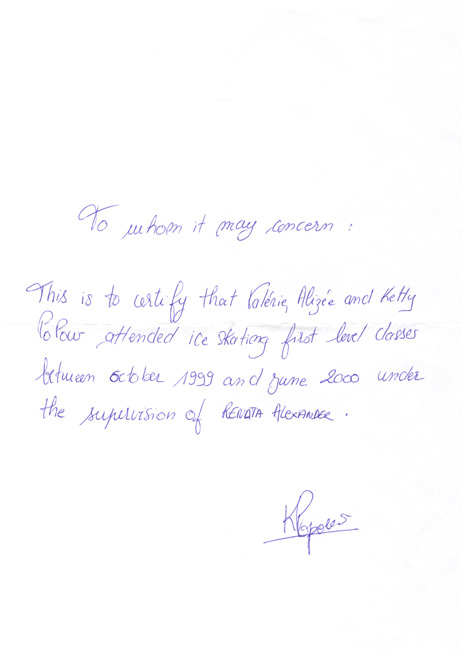 To whom it may concern :
This is to certify that Valérie, Alizée and Ketty
PoPow attended ice skating first level classes
between october 1999 and june 2000 under
the supervision of RENATA ALEXANDER .